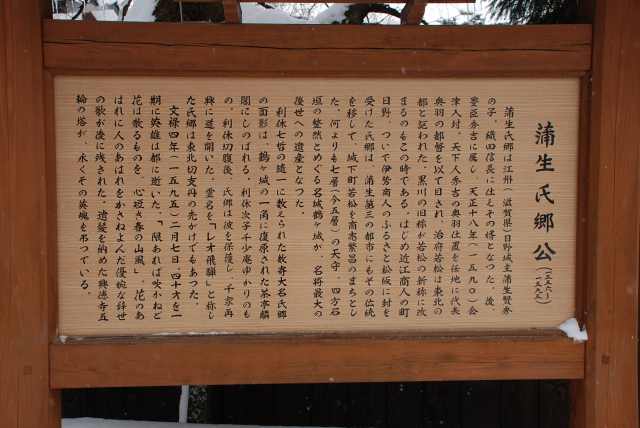 蒲生氏郷公(一五五六~一五九五)
蒲生氏郷は江州(滋賀県)日野城主蒲生賢秀
の子、織田信長に仕えその婿となった。後、
豊臣秀吉に属し、天正十八年(一五九〇)会
津入封、天下人秀吉の奥羽仕置を任地に代表
奥羽の都督を以て目され、治府若松は東北の
都と謳われた。黒川の旧称が若松の新称に改
まるのもこの時である。はじめ近江商人の町
日野、ついで伊勢商人のふるさと松坂に封を
受けた氏郷は、蒲生第三の都市にもその伝統
を移して、城下町若松を商売繁昌のまちとし
た。何よりも七層(今五層)の天守、四方石
垣の整然とめぐる名城鶴ヶ城が、名将最大の
後世への遺産となった。
利休七哲の随一に数えられた数寄大名氏郷
の面影は、鶴ヶ城の一角に復原された茶亭麟
閣にしのばれる。利休次子千少庵ゆかりのも
の。利休切腹後、氏郷は彼を保護し、千家再
興に道を開いた。霊名を「レオ飛騨」と称し
た氏郷は東北切支丹の先がけでもあった。
文禄四年(一五九五)二月七日、四十才を一
期に英雄は都に逝いた。「限あれば吹かねど
花は散るものを、心短き春の山風」。花のあ
はれに人のあはれをかさねよんだ優婉な辞世
の歌が後に残された。遺髪を納めた興徳寺五
輪の塔が、永くその英魂を弔っている。